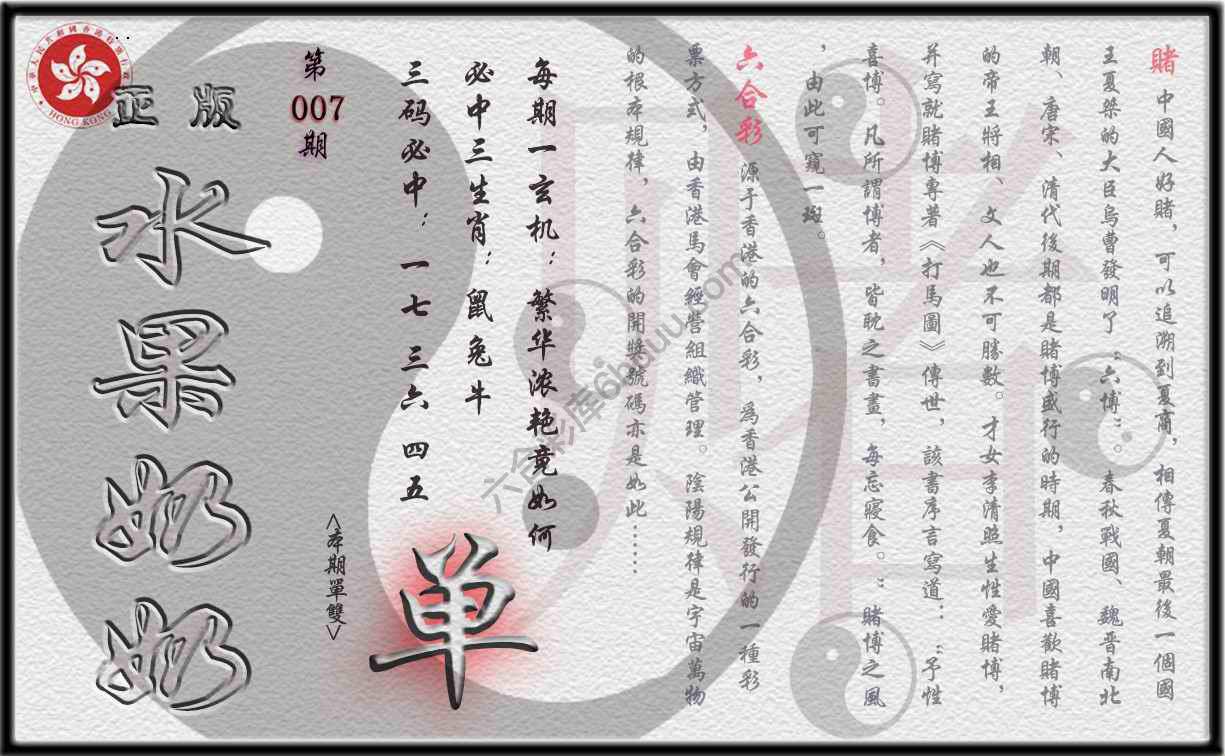 賭 中國人好賭，可以追溯到夏商，相傳夏朝最後一個國
王夏桀的大臣烏曹發明了“六博”。春秋戰國、魏晋南北
朝、唐宋、清代後期都是賭博盛行的時期，中國喜歡賭博
的帝王將相、文人也不可勝數。才女李清照生性愛賭博，
并寫就賭博專著《打馬圖》傳世，該書序言寫道：：“予性
喜博。凡所謂博者，皆耽之書畫，每忘寢食。”賭博之風
，由此可窺一斑。
六合彩 源于香港的六合彩，爲香港公開發行的一種彩
票方式，由香港馬會經營組織管理。陰陽規律是宇宙萬物
的根本規律，六合彩的開獎號碼亦是如此……
每期一玄机：繁华浓艳竟如何
必中三生肖：鼠兔牛
三码必中：一七 三六 四五
<本期單雙>
单
第
007
期
正版
水果奶奶
HONG KONG
六合彩库6hduuu.com